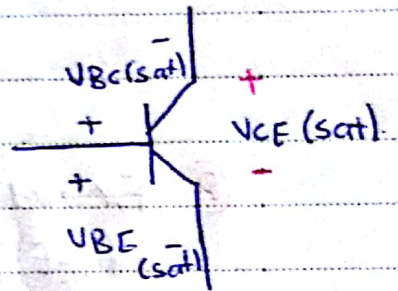 -
VBC(sat)
+
+
VCE (sat).
+
-
VBE
-
(sat)